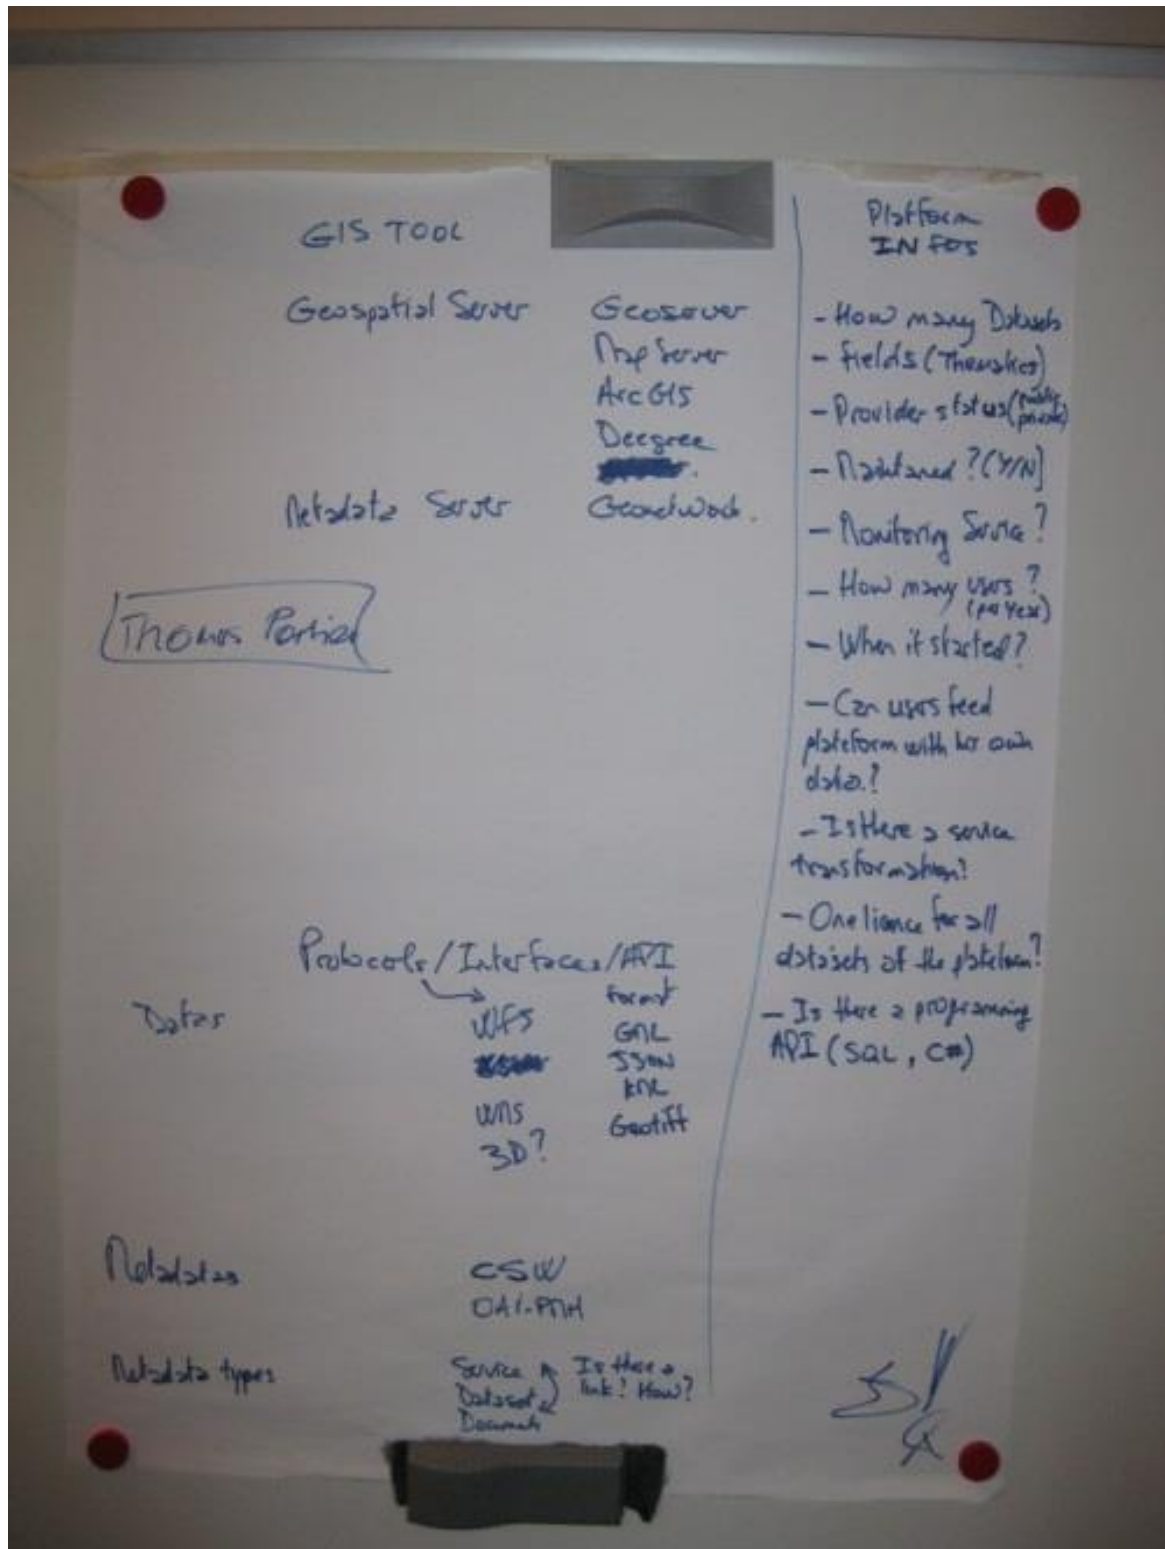 GIS TOOL
Geospatial Server
Geoserver
Map Server
ArcGIS
Deegree
Metadata Server
Thomas
Protocols/Interfaces/API
format
Datas
WFS
GML
JSON
KML
WMS
Geotiff
3D?
Metadatas
CSW
OAI-PMH
Metadata types
Service
Dataset
Documents
Is there a
link? How?
Platform
INFOS
- How many Datasets
- fields (Thematics)
- Provider status (public
private)
- Maintained? (Y/N)
- Monitoring Service?
- How many users?
(per Year)
- When it started?
- Can users feed
plateform with her own
data?
- Is there a service
transformation?
- One licence for all
datasets of the plateform?
- Is there a programming
API (SQL, C#)